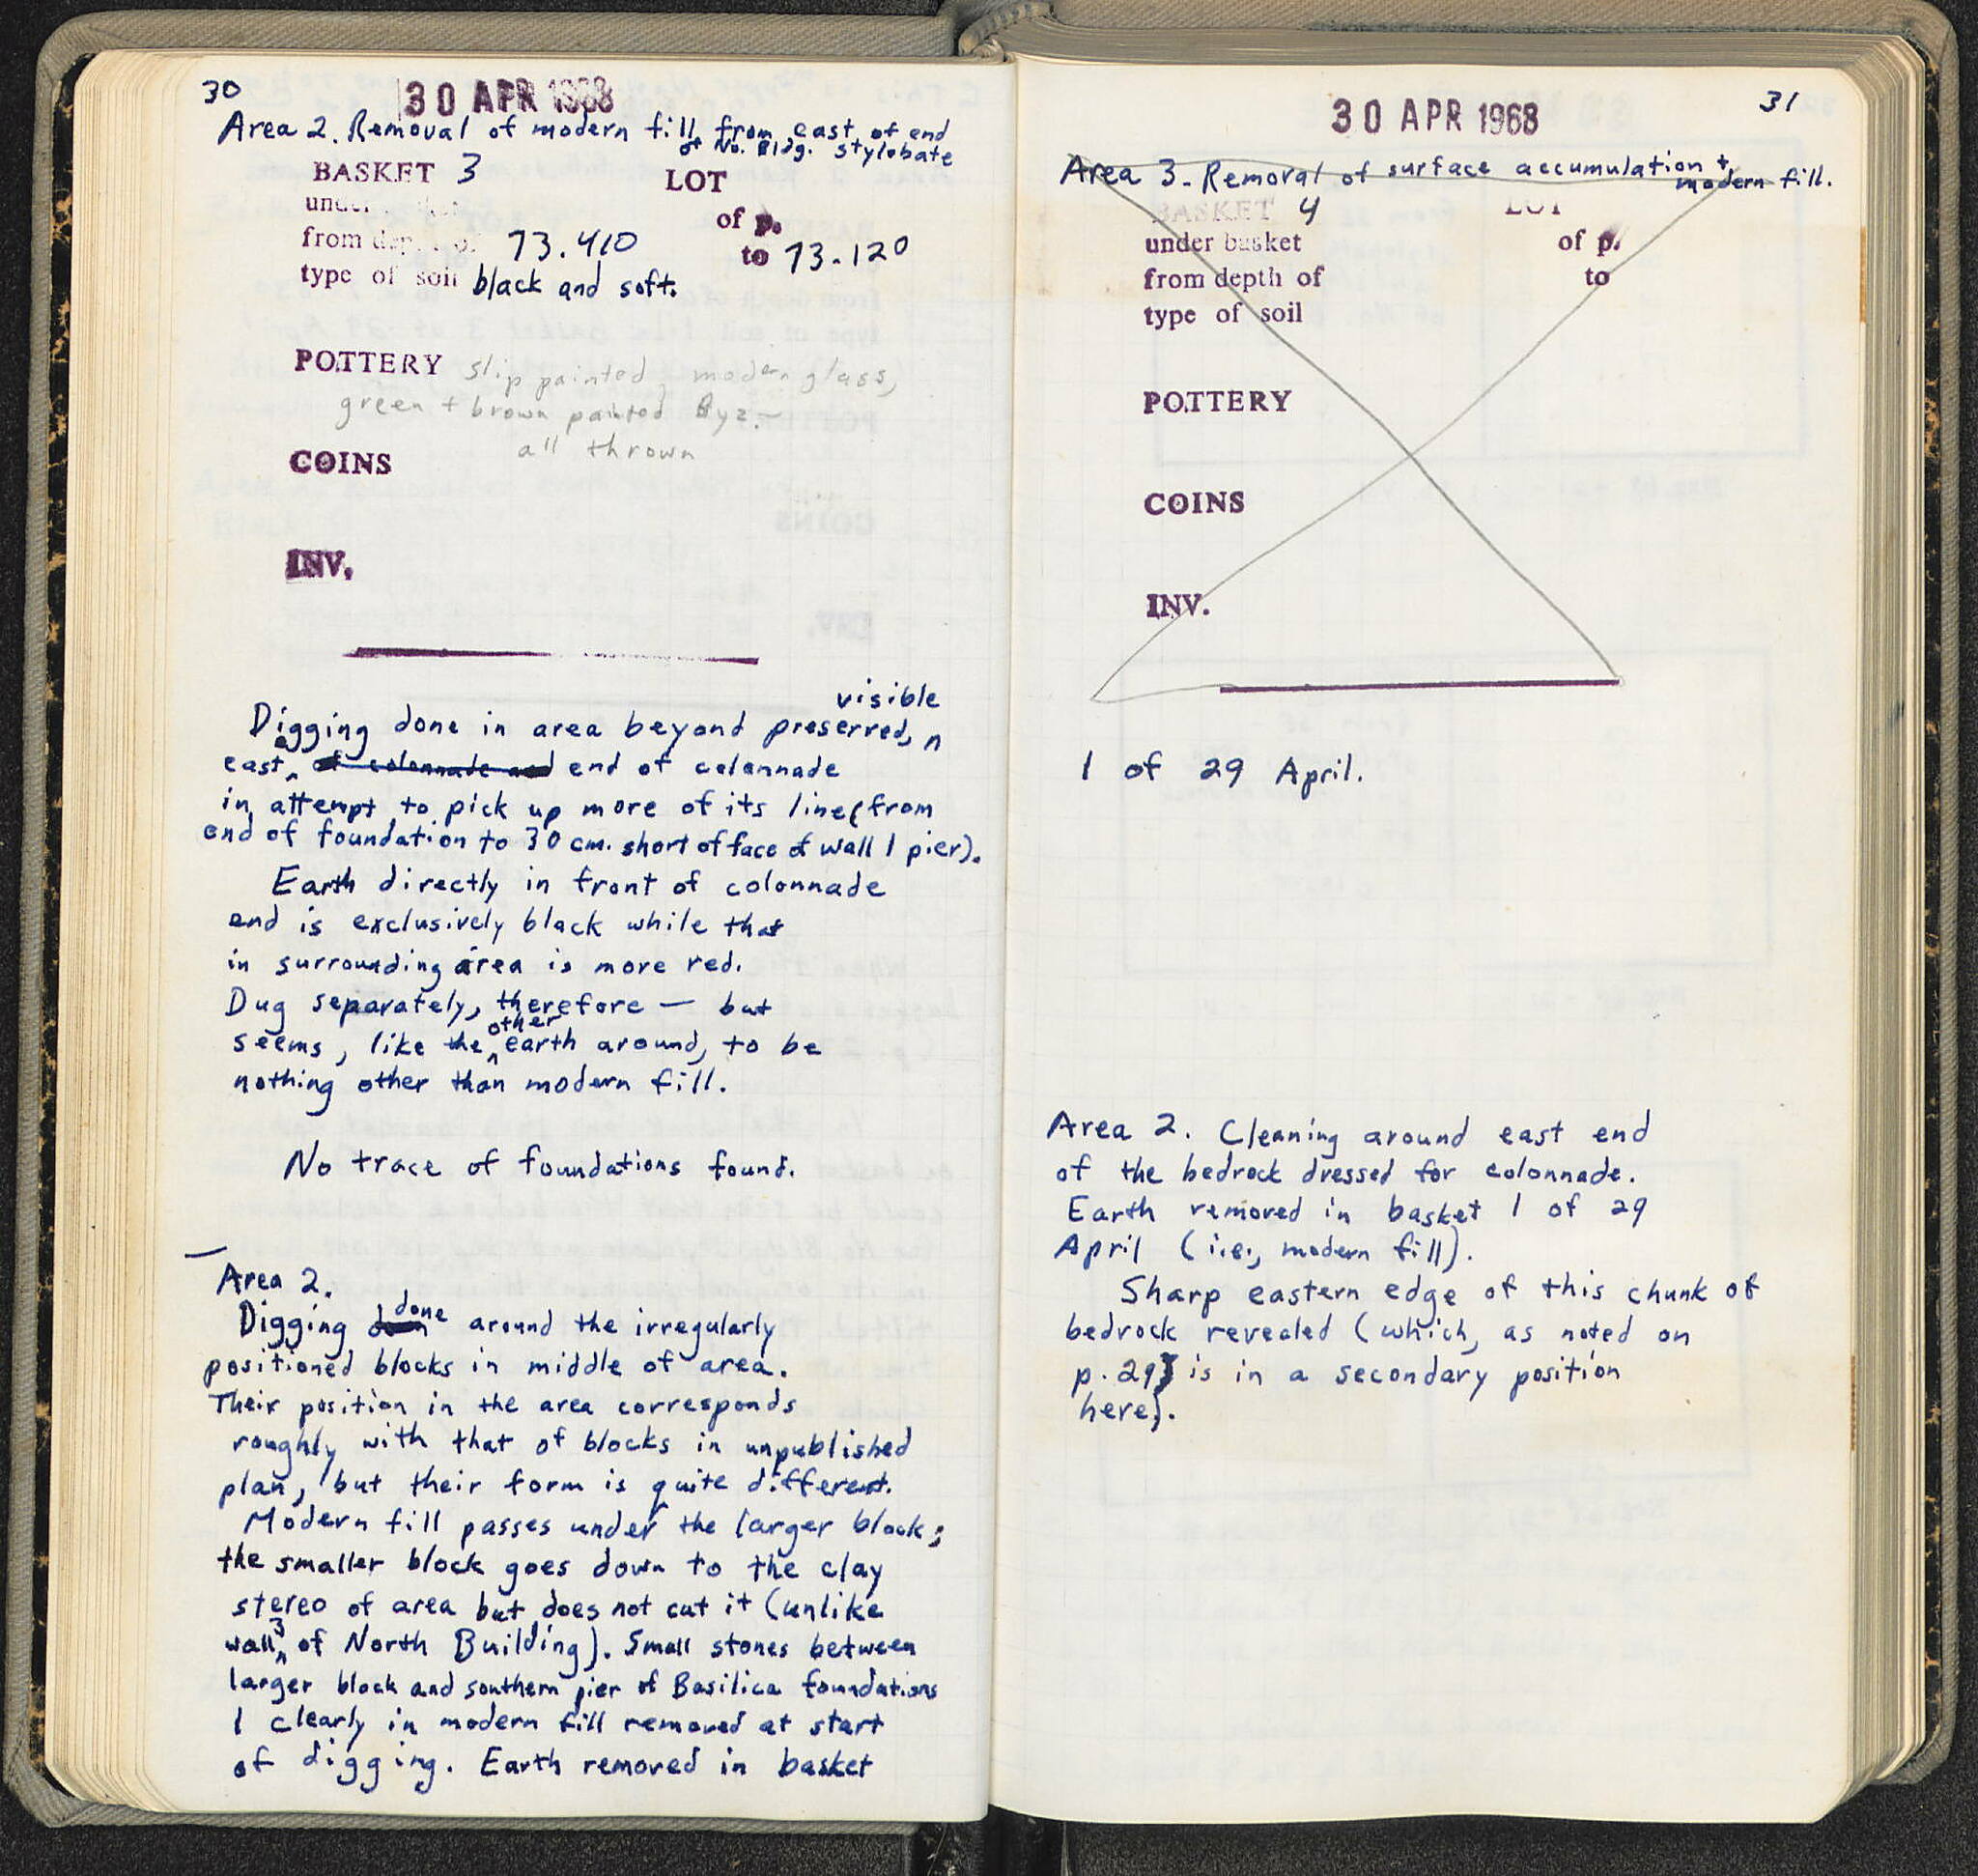 30
30 APR 1968
Area 2. Removal of modern fill from east of end
of No. Bldg. stylobate
BASKET 3 LOT
under of p.
from depth of 73.410 to 73.120
type of soil black and soft.
POTTERY slip painted, modern glass,
green + brown painted Byz. –
all thrown
COINS
INV.
visible
Digging done in area beyond preserved,
east end of colonnade
in attempt to pick up more of its line (from
end of foundation to 30 cm. short of face of wall 1 pier).
Earth directly in front of colonnade
end is exclusively black while that
in surrounding area is more red.
Dug separately, therefore — but
other
seems, like the earth around, to be
nothing other than modern fill.
No trace of foundations found.
Area 2.
Digging done around the irregularly
positioned blocks in middle of area.
Their position in the area corresponds
roughly with that of blocks in unpublished
plan, but their form is quite different.
Modern fill passes under the larger block;
the smaller block goes down to the clay
stereo of area but does not cut it (unlike
wall 3 of North Building). Small stones between
larger block and southern pier of Basilica foundations
1 clearly in modern fill removed at start
of digging. Earth removed in basket
31
30 APR 1968
Area 3. Removal of surface accumulation +
modern fill.
BASKET 4 LOT
under basket of p.
from depth of to
type of soil
POTTERY
COINS
INV.
1 of 29 April.
Area 2. Cleaning around east end
of the bedrock dressed for colonnade.
Earth removed in basket 1 of 29
April (i.e., modern fill).
Sharp eastern edge of this chunk of
bedrock revealed (which, as noted on
p. 29, is in a secondary position
here).